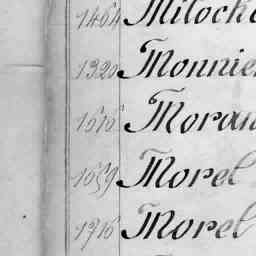 1464 Milock
1320 Monnier
1616 Moran
1659 Morel
1716 Morel